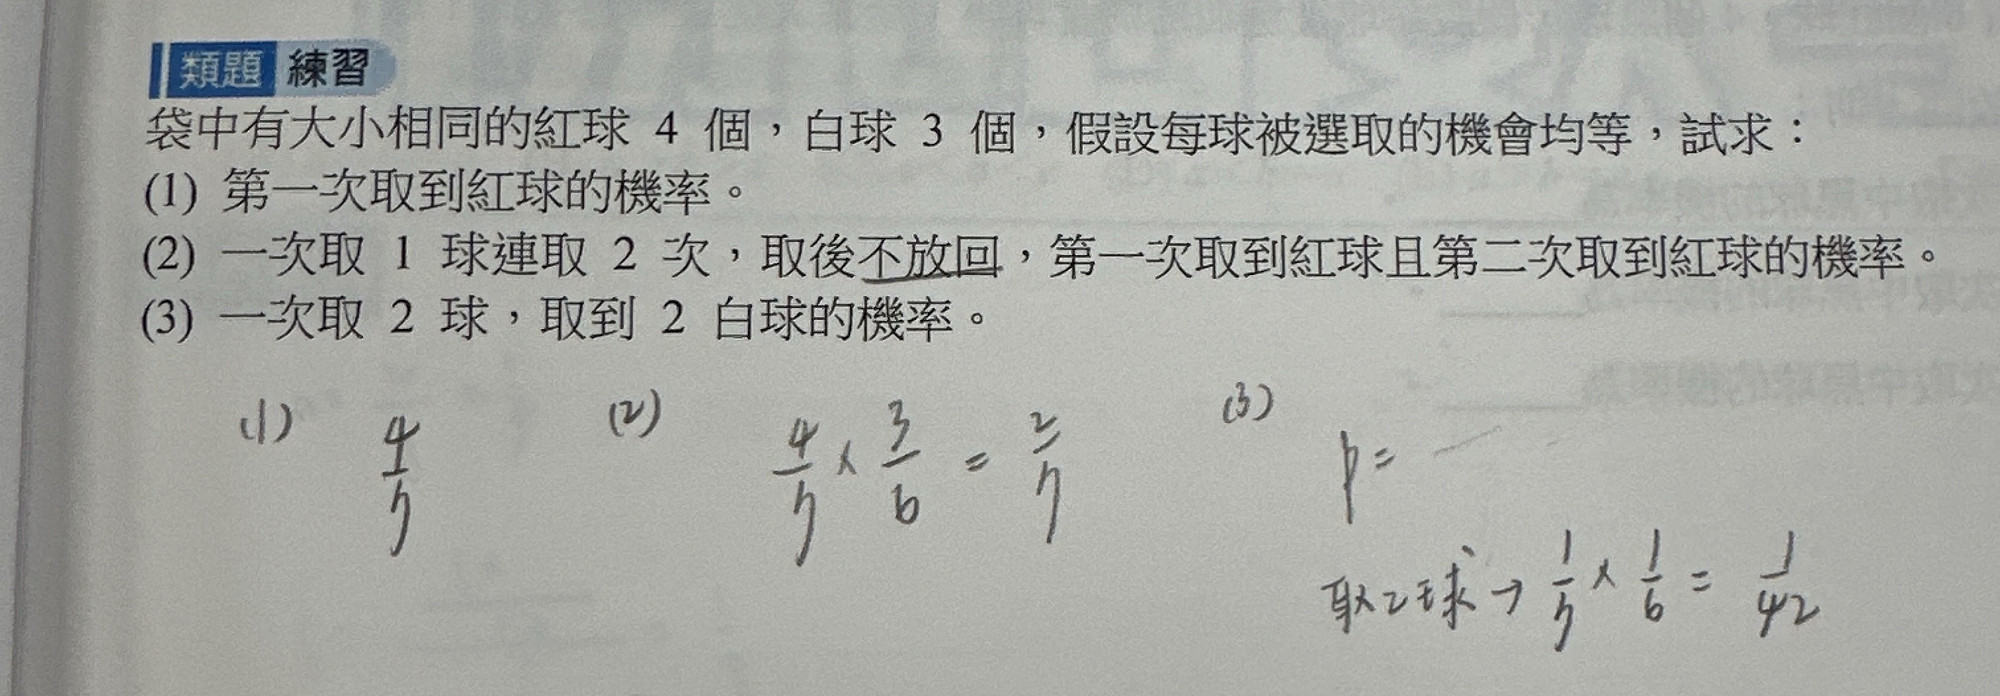 類題 練習
袋中有大小相同的紅球 4 個，白球 3 個，假設每球被選取的機會均等，試求：
(1) 第一次取到紅球的機率。
(2) 一次取 1 球連取 2 次，取後不放回，第一次取到紅球且第二次取到紅球的機率。
(3) 一次取 2 球，取到 2 白球的機率。
(1) 4/7 (2) 4/7 × 3/6 = 2/7 (3) P =
取2球 → 1/7 × 1/6 = 1/42